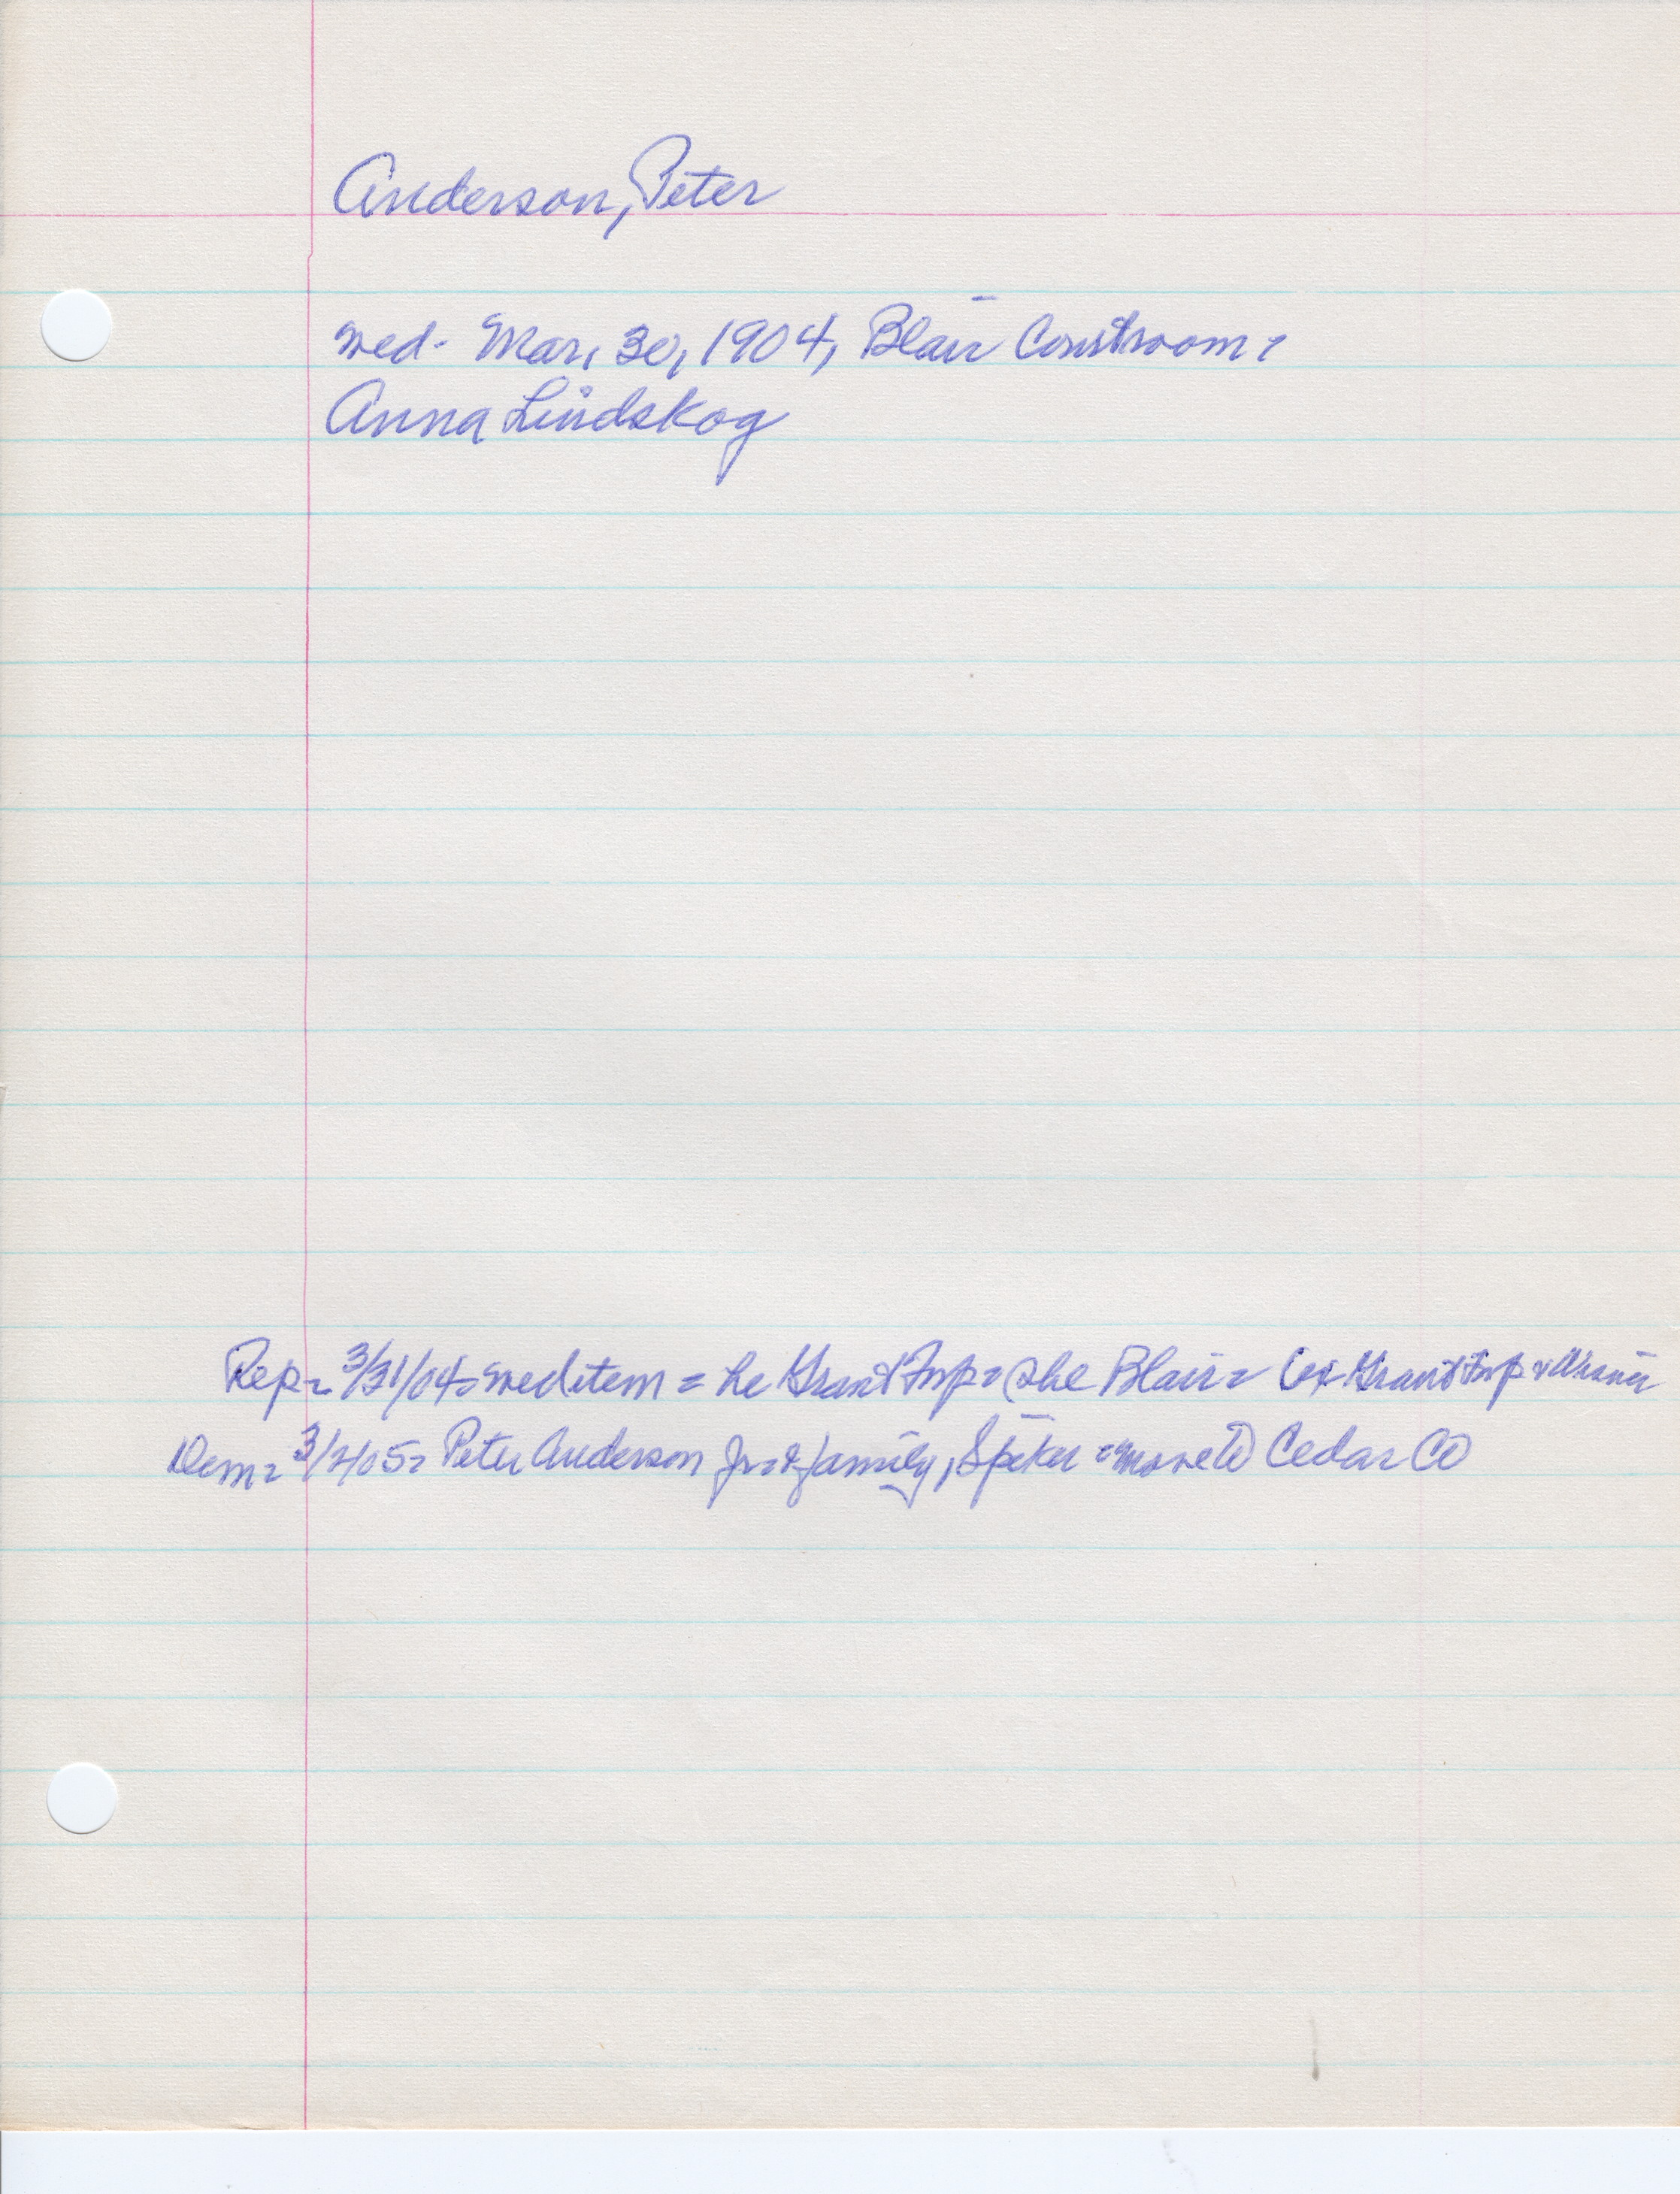 Anderson, Peter
wed- Mar, 30, 1904, Blair Courtroom =
Anna Lindskog
Rep = 3/31/04 = wed item = he Grant Twp = she Blair = Grant Twp &
Dem = 3/2/05 = Peter Anderson Jr. & family, Spiker = move to Cedar Co